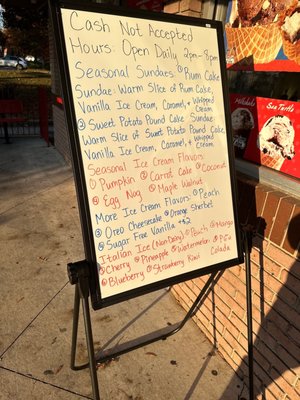 Cash Not Accepted
Hours: Open Daily 2pm-8pm
Seasonal Sundaes ① Rum Cake
Sundae: Warm Slice of Rum Cake,
Vanilla Ice Cream, Caramel, + Whipped Cream
② Sweet Potato Pound Cake Sundae
Warm Slice of Sweet Potato Pound Cake
Vanilla Ice Cream, Caramel + Whipped Cream
Seasonal Ice Cream Flavors
① Pumpkin ② Carrot Cake ③ Coconut
④ Egg Nog ⑤ Maple Walnut
More Ice Cream Flavors ① Peach
② Oreo Cheesecake ③ Orange Sherbet
④ Sugar Free Vanilla +$2
Italian Ice (Non Dairy) ① Peach ② Mango
③ Cherry ④ Pineapple ⑤ Watermelon ⑥ Piña Colada
⑦ Blueberry ⑧ Strawberry Kiwi
Holidaze
Sea Turtle